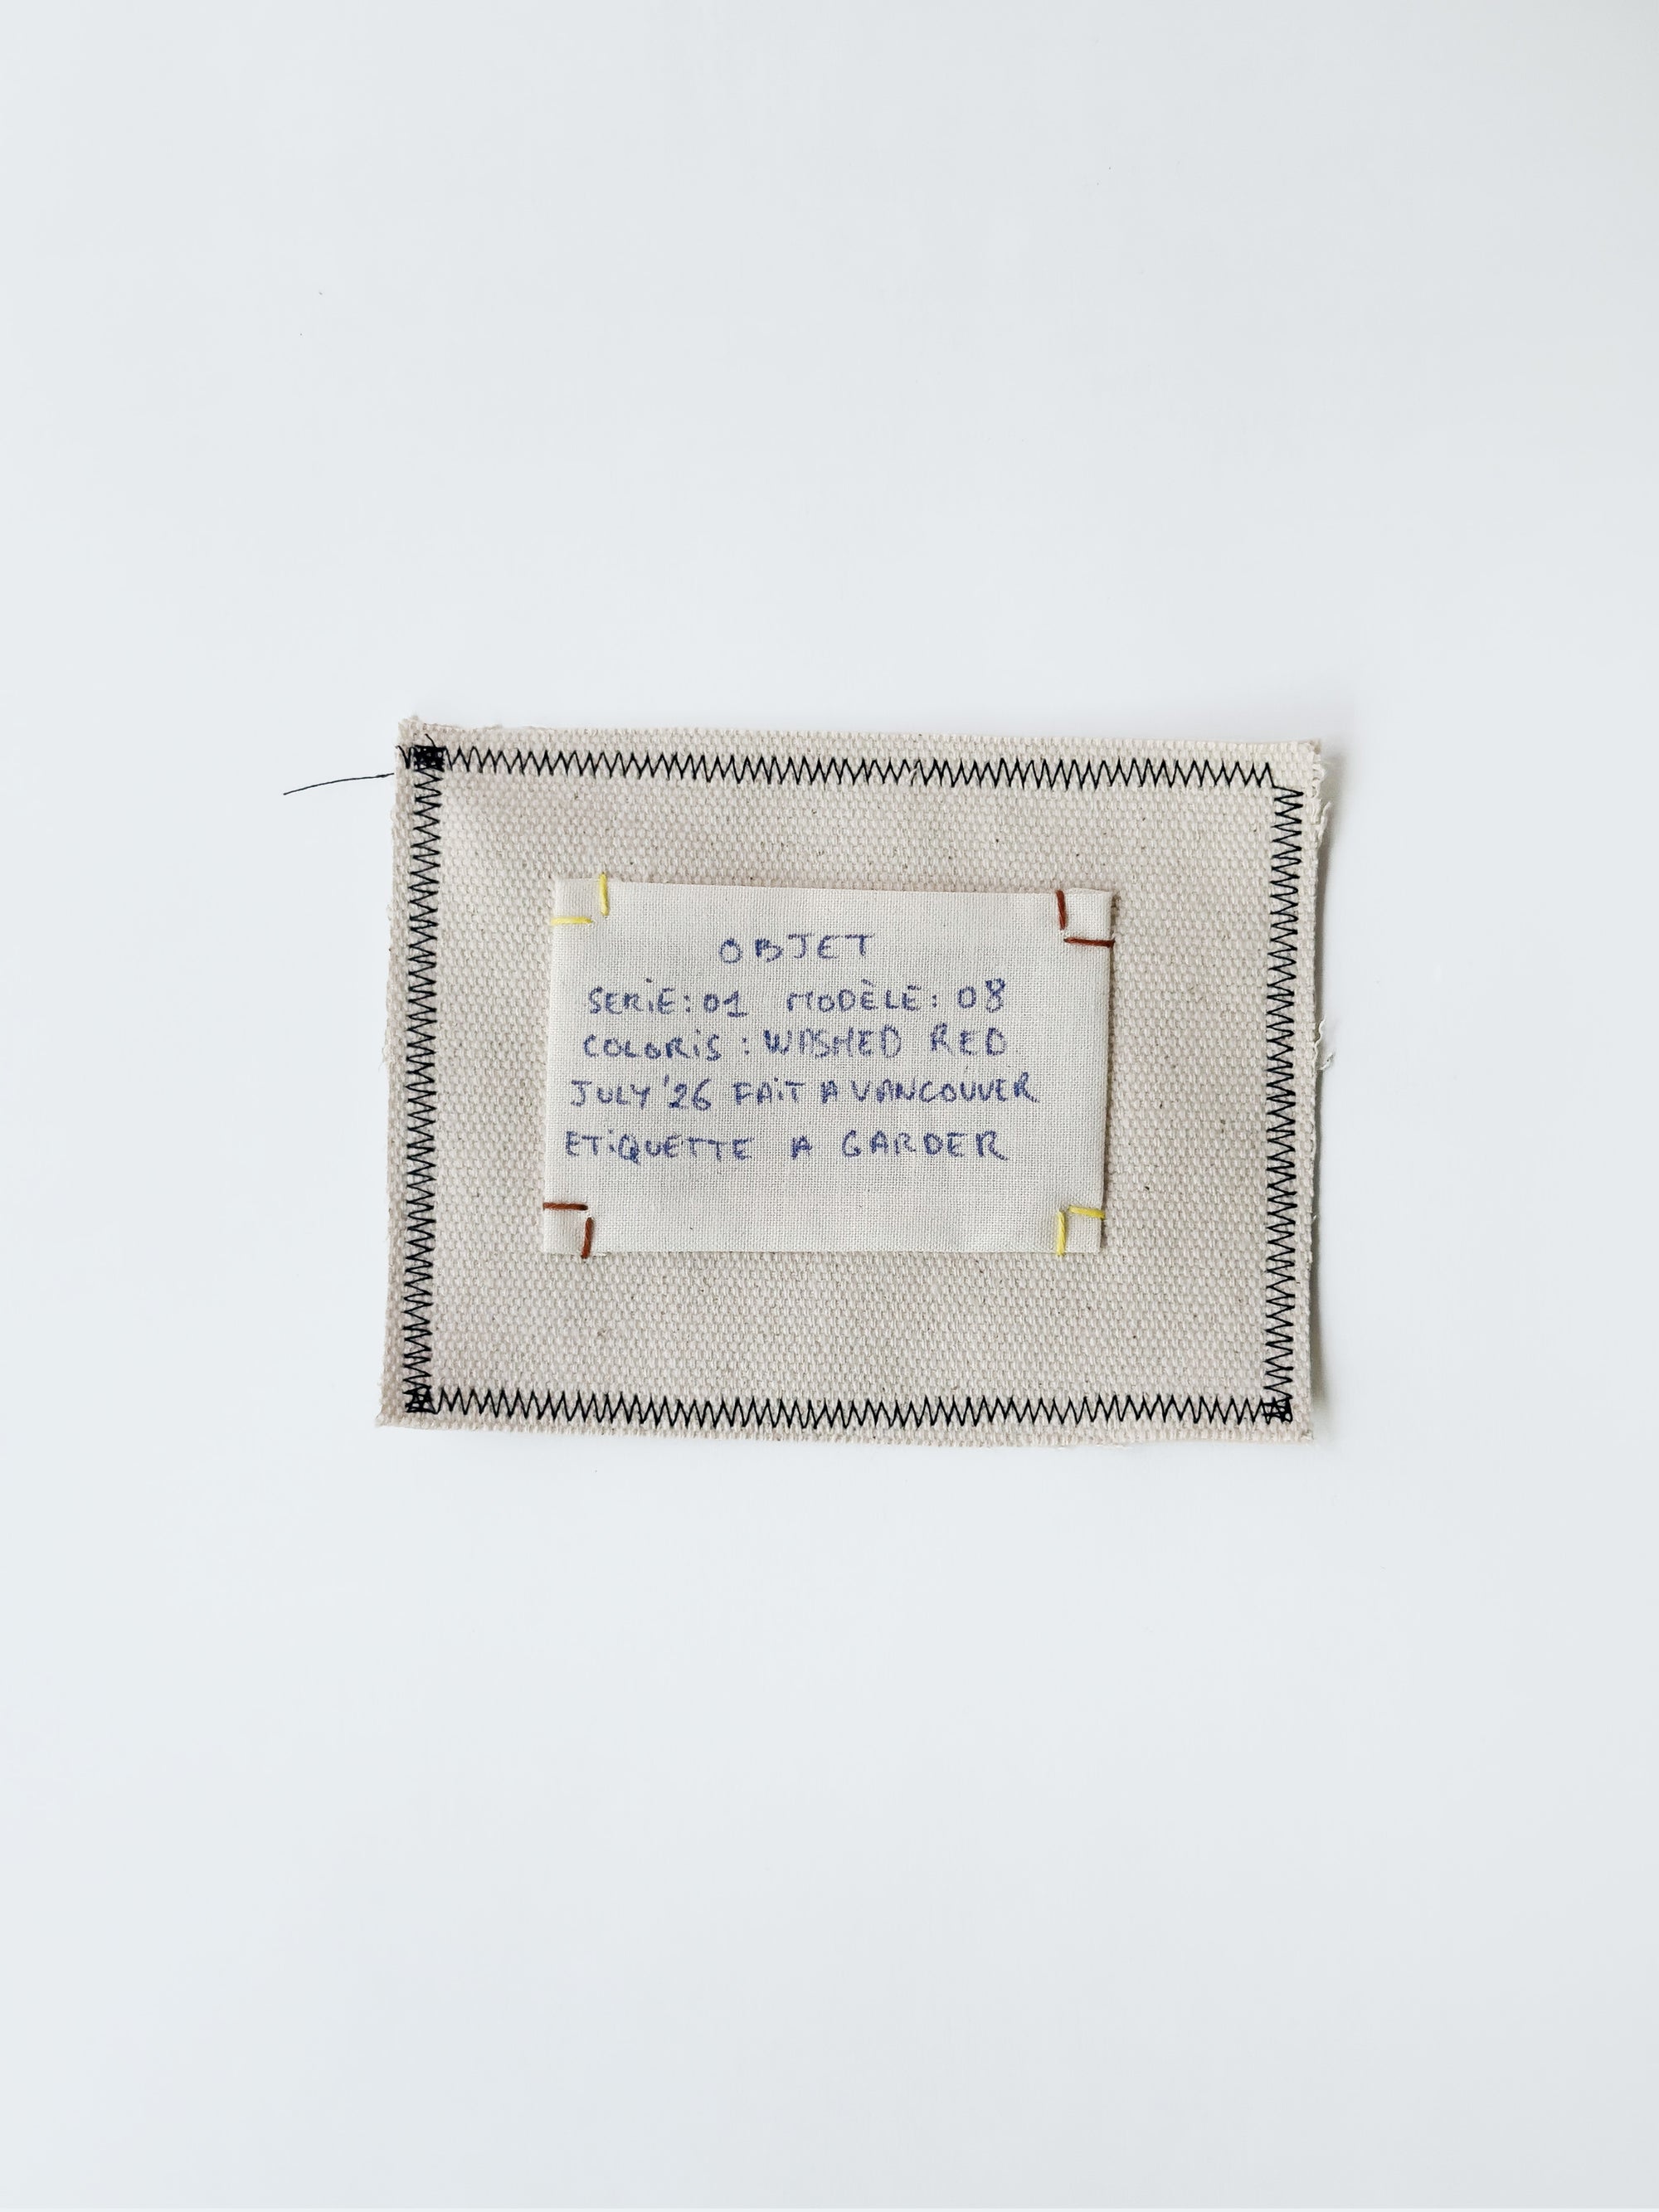 OBJET
SERiE: 01 MODÈLE: 08
COLORiS : WASHED RED
JULY '26 FAiT A VANCOUVER
ETiQUETTE A GARDER